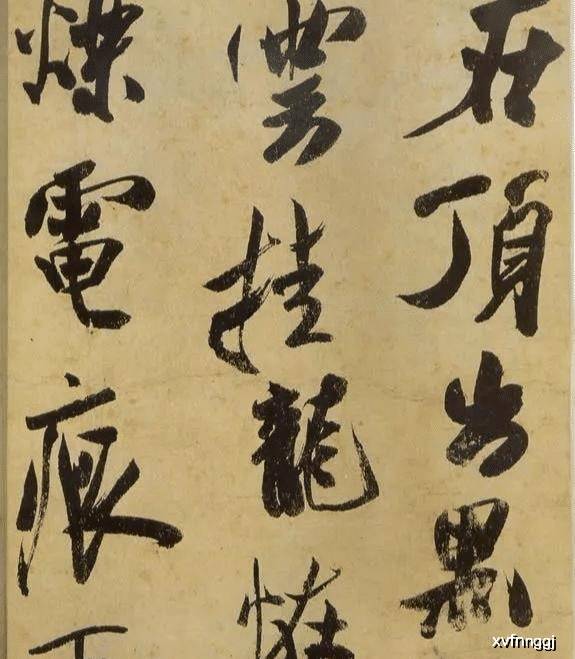 在頂出黑
雲挂龍恠
爍電痕
xvfnnggj